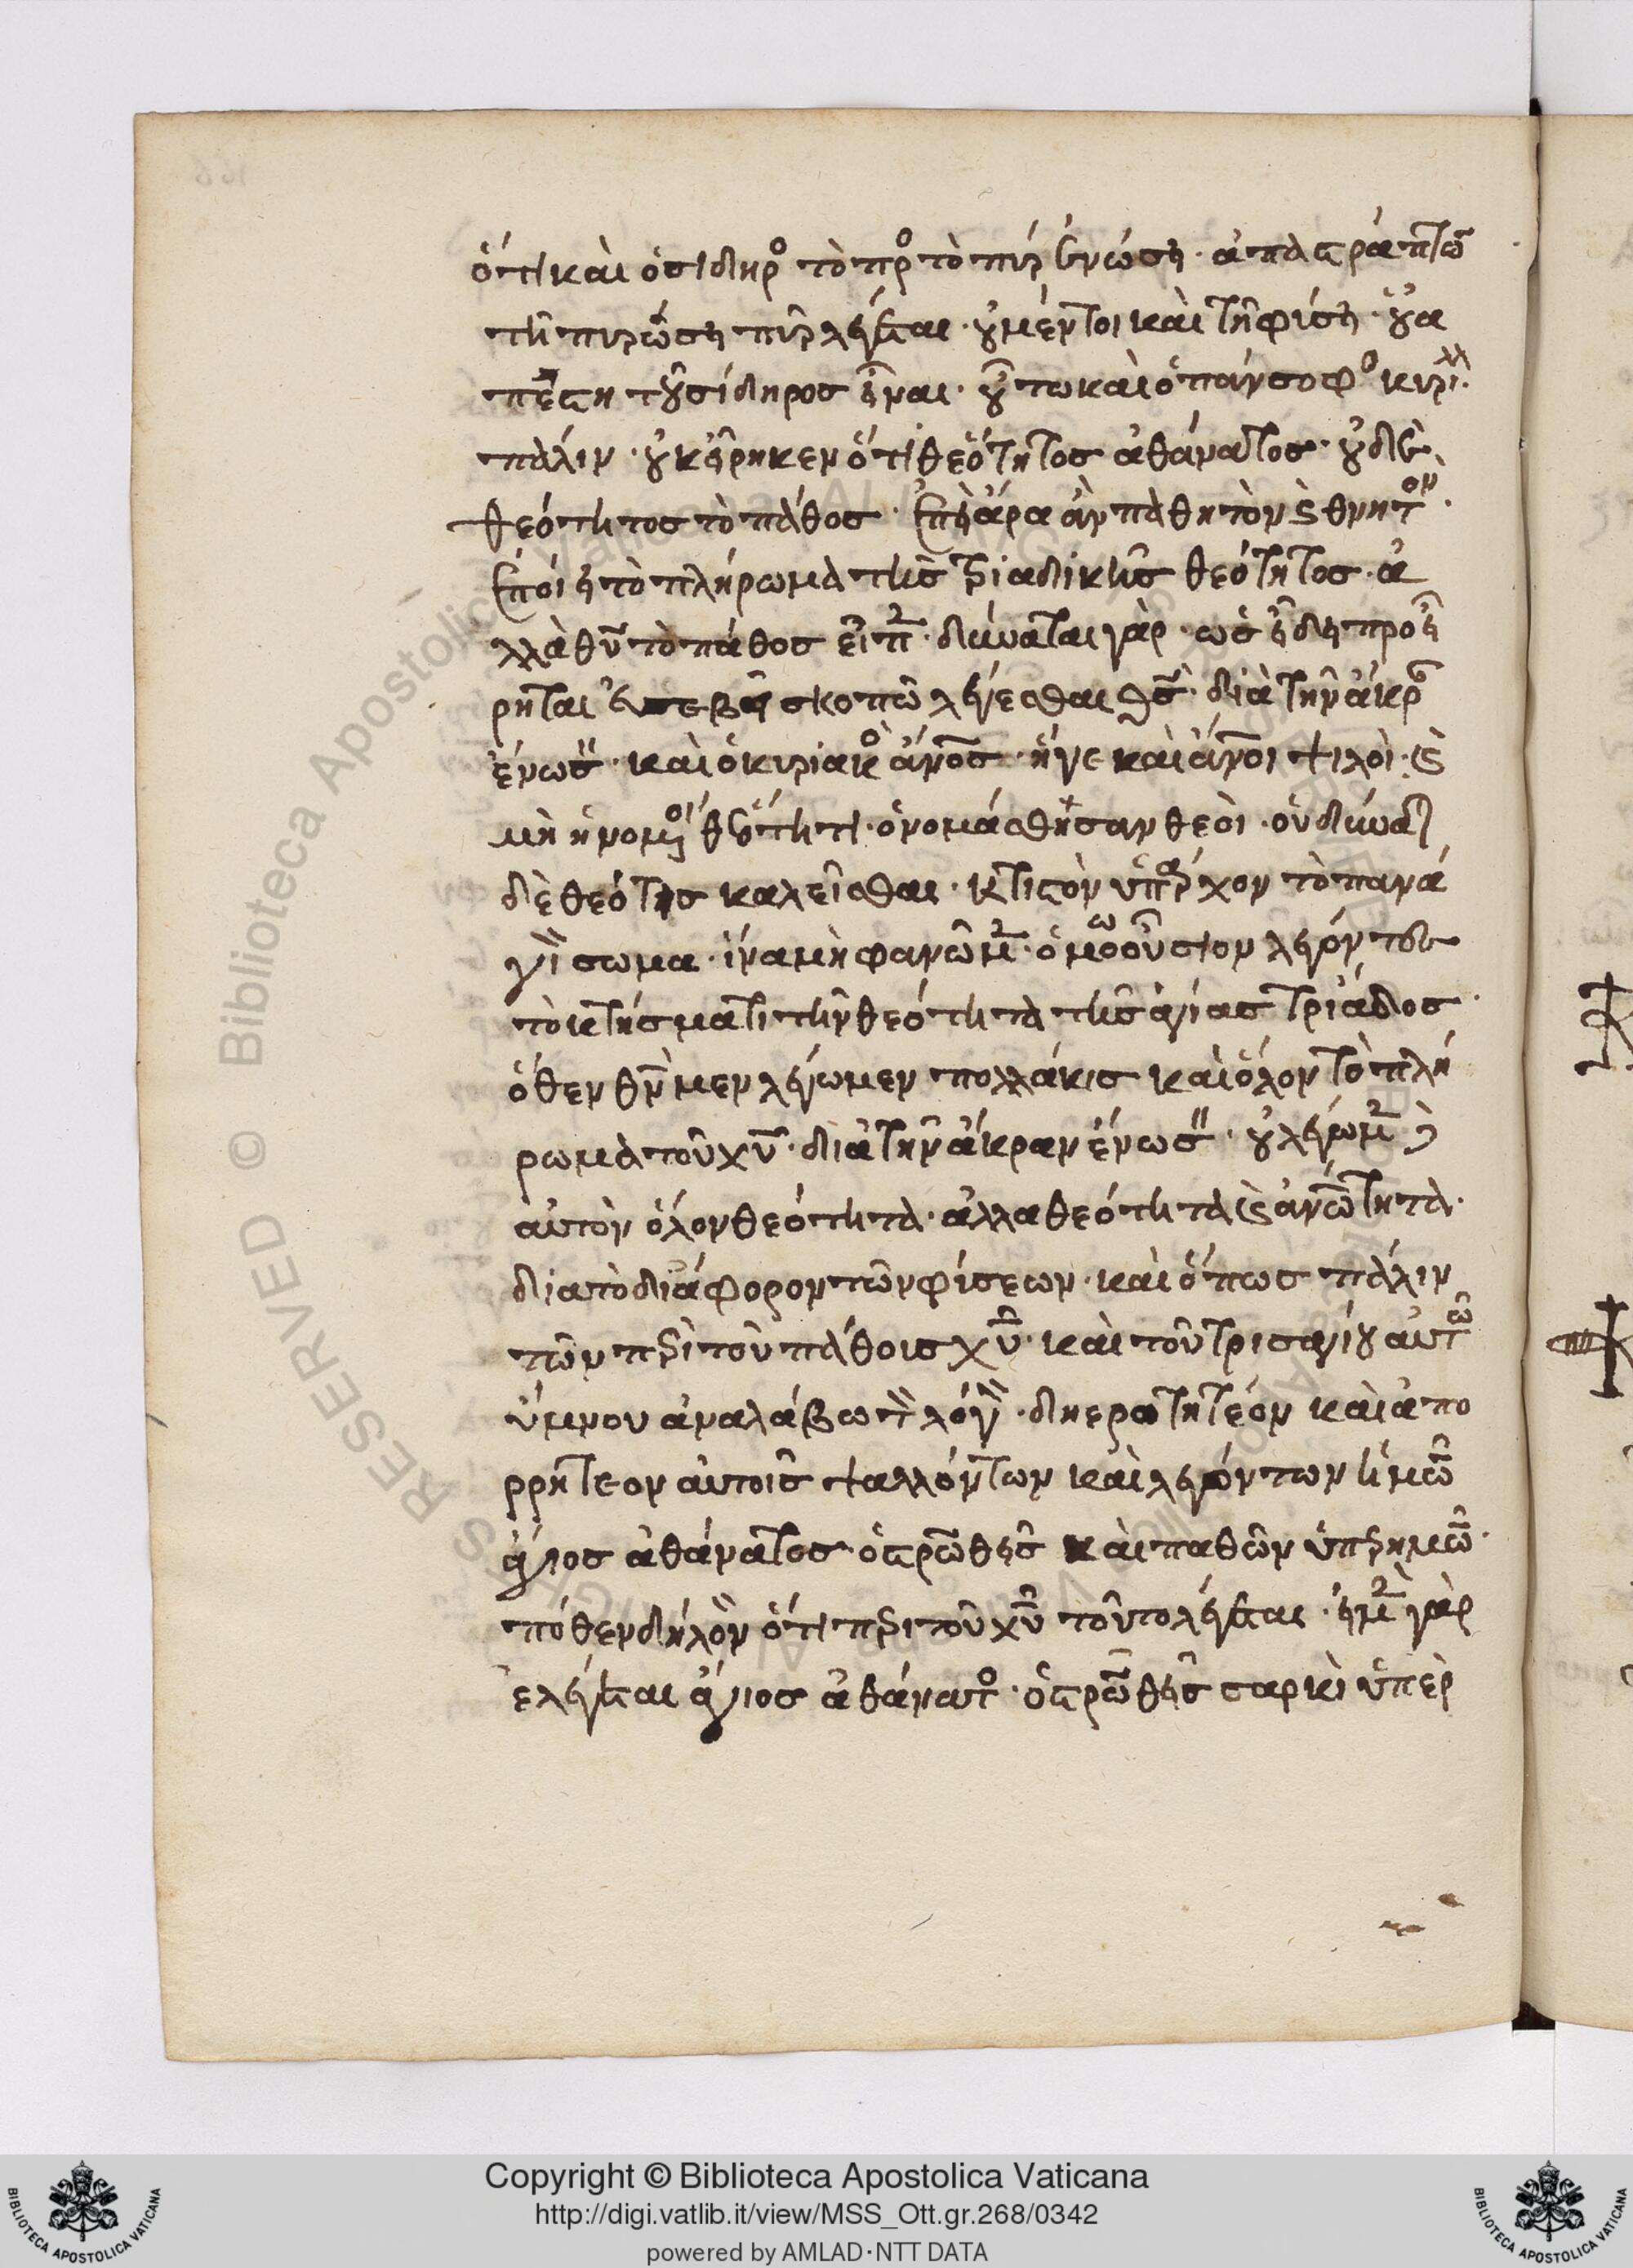 ὅτι καὶ ὁ σίδηρο τὸ πρὸ τὸ πῦρ ἑνώσει· ἀπαστράπτων
τῇ πυρώσει πῦρ λέγεται· οὐ μέντοι καὶ τῇ φύσει· οὐ α
πέστη τοῦ σίδηρος εἶναι· οὕτω καὶ ὁ πάνσοφο κύριλλ
πάλιν· οὐκ εἴρηκεν ὅτι θεότητος ἀθάνατος· οὐδὲ
θεότητος τὸ πάθος· ἐπεὶ ἄρα ἂν παθητὸν καὶ θνητὸν
ἐποίει τὸ πλήρωμα τῆς τριαδικῆς θεότητος· ἀ
λλὰ θυ τὸ πάθος εἶπ· δύναται γὰρ· ὡς ἤδη προεί
ρηται εὐσεβεῖ σκοπῷ λέγεσθαι θς· διὰ τὴν ἄκραν
ἕνωσ· καὶ ὁ κυριακὸ ἄνος· εἴγε καὶ ἄνοι ψιλοὶ· καὶ
μὴ ἡνωμένοι θεότητι· ὀνομάσθησαν θεοὶ· οὐ δύναται
δὲ θεότης καλεῖσθαι· κτιστὸν ὑπάρχον τὸ πανά
γι σωμα· ἵνα μὴ φανῶμεν· ὁμοούσιον λέγοντες
τὸ κτήσματι τὴν θεότητα τῆς ἁγίας τριάδος·
ὅθεν θν μεν λέγωμεν πολλάκις καὶ ὅλον τὸ πλή
ρωμα τοῦ χυ· διὰ τὴν ἄκραν ἕνωσ· οὐ λέγωμεν δὲ
αὐτὸν ὅλον θεότητα· ἀλλα θεότητα καὶ ἀνότητα·
δια τὸ διάφορον τῶν φύσεων· καὶ ὅπως πάλιν
τῶν περὶ τοῦ πάθους χυ· καὶ τοῦ τρισαγίου αὐτῶν
ὕμνου ἀναλάβω τ λόγ· διερωτητέον καὶ ἀπο
ρρητεον αὐτοῖς ψαλλόντων καὶ λεγόντων ἡμῶν
ἅγιος ἀθάνατος· ὁ στρωθεὶς καὶ παθὼν ὑπὲρ ημῶν·
πόθεν δήλον ὅτι περι τοῦ χυ τοῦτο λέγεται· εἰ μεν γὰρ
ελέγεται ἅγιος ἀθάνατο· ὁ στρωθεὶς σαρκὶ ὑπὲρ
Copyright © Biblioteca Apostolica Vaticana
http://digi.vatlib.it/view/MSS_Ott.gr.268/0342
powered by AMLAD·NTT DATA